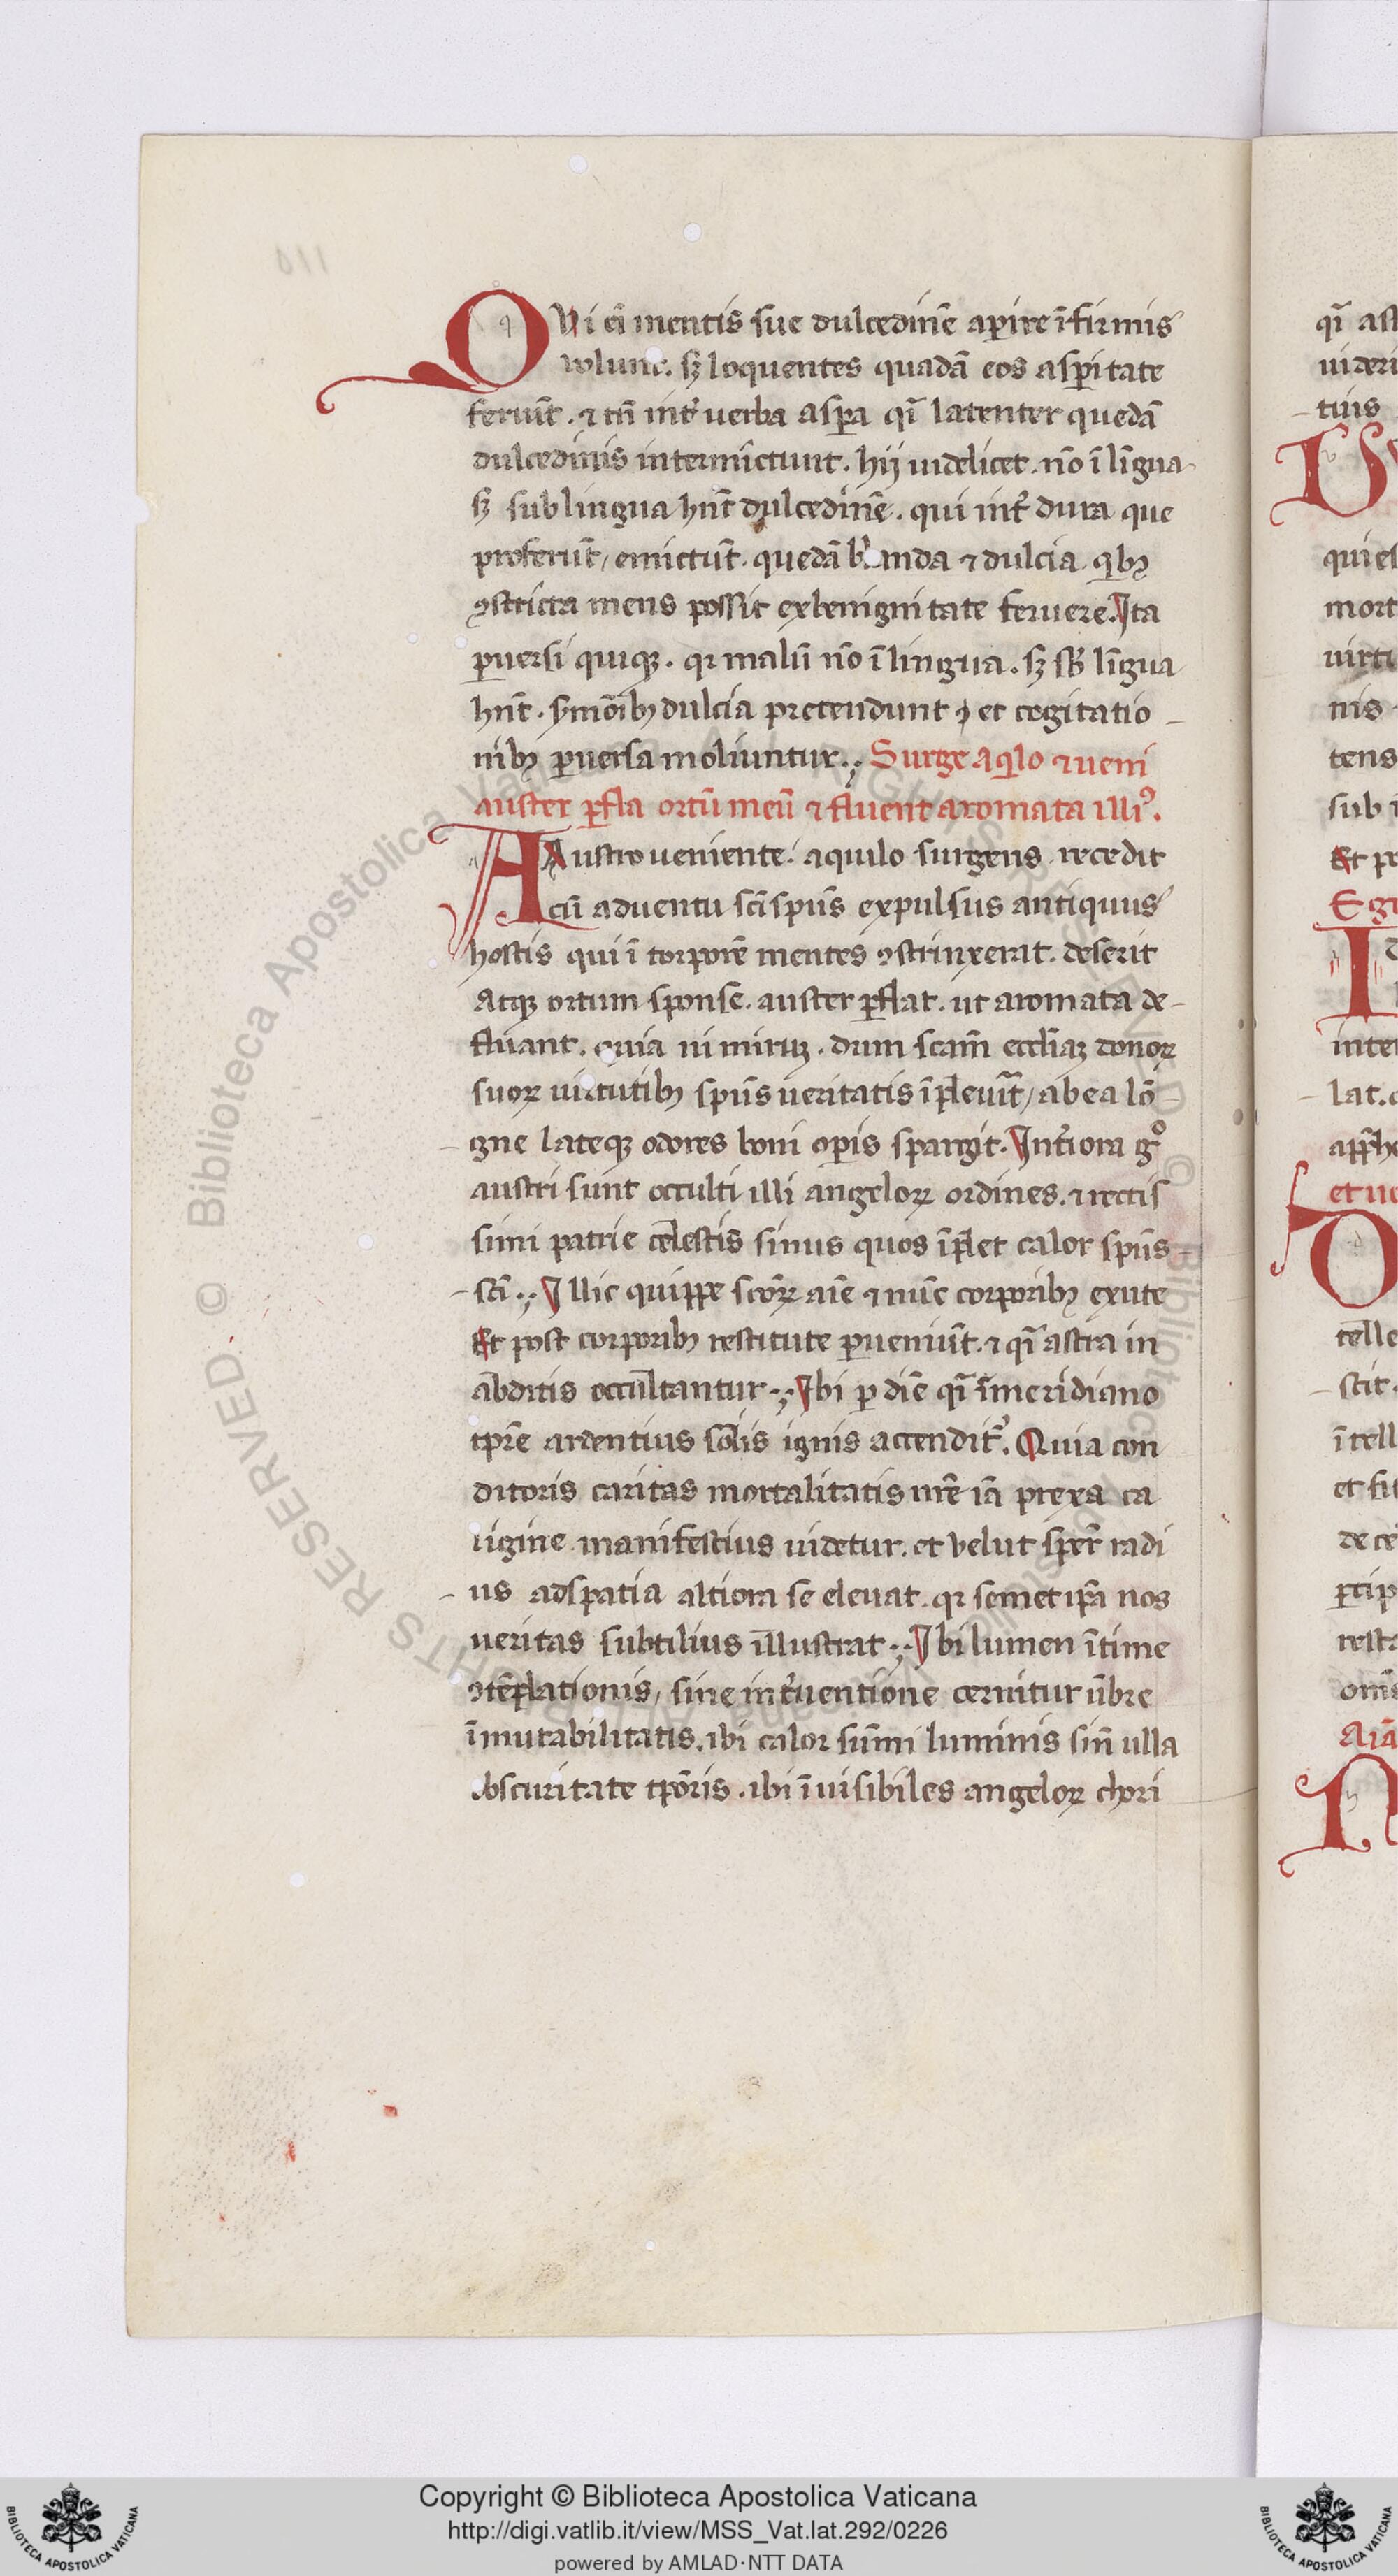 QVi cū mentis sue dulcedinē aꝑire īfirmis
nolunt. sꝫ loquentes quadā eos asꝑitate
feriūt. ⁊ tn̄ int̓ uerba asꝑa qͣi latenter quedā
dulcedinis intermictunt. hij uidelicet. nō ī līgua
sꝫ sub lingua hn̄t dulcedinē. qui int̓ dura que
proferūt, emictūt. quedā blanda ⁊ dulcia. qͥbꝫ
ꝯstricta mens possit ex benignitate feruere. Ita
ꝑuersi quiqꝫ. qr malū nō ī lingua. sꝫ sb̄ līgua
hn̄t. ẜmōibꝫ dulcia pretendunt, et cogitatio
nibꝫ ꝑuersa moliuntur. Surge aqͥlo ⁊ ueni
auster ꝑfla ortū meū ⁊ fluent aromata illiꝰ.
AAustro ueniente. aquilo surgens recedit
cū aduentu sc̄i sp̄us expulsus antiquus
hostis qui ī torporē mentes ꝯstrinxerat. deserit
Atqꝫ ortum sponse. auster ꝑflat. ut aromata de-
fluant. quia nimirꝫ. dum scām eccl̄iaꝫ donoꝝ
suoꝝ uirtutibꝫ sp̄us ueritatis īpleuit, ab ea lō
gne lateqꝫ odores boni oꝑis spargit. Int̓iora gͦ
austri sunt occulti illi angeloꝝ ordines. ⁊ rectis
simi patrie celestis sinus quos īplet calor sp̄us
sc̄i. Illic quippe sc̄oꝝ aīe ⁊ nūc corporibꝫ exute
Et post corporibꝫ restitute ꝑueniūt. ⁊ qͣi astra in
abditis occultantur. Ibi ꝑ diē qͣi ī meridiano
tp̄re ardentius solis ignis accendit̓. Quia con
ditoris caritas mortalitatis nr̄e iā prexa ca
ligine manifestius uidetur. et velut sper̄ radi
us ad spatia altiora se eleuat. qr semet ip̄a nos
ueritas subtilius illustrat. Ibi lumen ītime
ꝯtēplationis, sine int̓uentione cernitur ūbre
īmutabilitatis. ibi calor sūmi luminis sin̄ ulla
obscuritate tp̄oris. ibi īuisibiles angeloꝝ chori
Copyright © Biblioteca Apostolica Vaticana
http://digi.vatlib.it/view/MSS_Vat.lat.292/0226
powered by AMLAD·NTT DATA